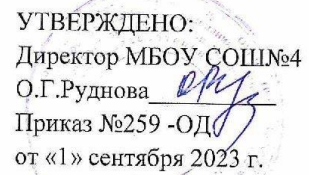 УТВЕРЖДЕНО:
Директор МБОУ СОШ№4
О.Г.Руднова
Приказ №259 -ОД
от «1» сентября 2023 г.